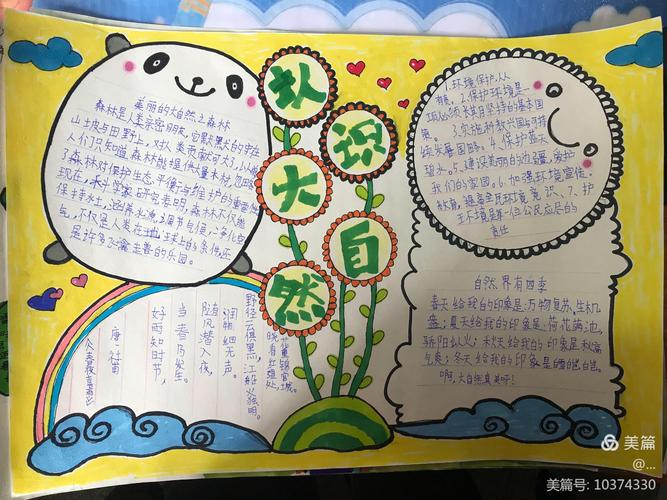 认
识
大
自
然
美丽的大自然之森林
森林是人类亲密朋友,它默默的守在
山坡与田野上,对人类贡献可大了!以前
人们只知道森林能提供大量木材,忽略
了森林对保护生态平衡与维护的重要作
现在,科学家研究表明,森林不仅能
保持水土,涵养水源,调节气候,净化空
气,不仅是人类在地球上的条件,还
是许多飞禽走兽的乐园。
1.环境保护,从
2.保护环境是
一项必须长期坚持的基本国
策。3.实施科教兴国与可持
续发展国略。4.保护蓝天
碧水。5.建设美丽的边疆,爱护
我们的家园。6.加强环境宣传
教育,提高全民环境意识、7.护
环境是每一位公民应尽的
责任
自然界有四季
春天给我的印象是:万物复苏,生机
盎;夏天给我的印象是:荷花满池,
骄阳似火;秋天给我的印象是秋高
气爽;冬天给我的印象是皑皑白雪。
啊,大自然真美呀!
春夜喜雨
唐·杜甫
好雨知时节,
当春乃发生。
随风潜入夜,
润物细无声。
野径云俱黑,江船火独明。
晓看红湿处,
花重锦官城。
美篇
@...
美篇号: 10374330